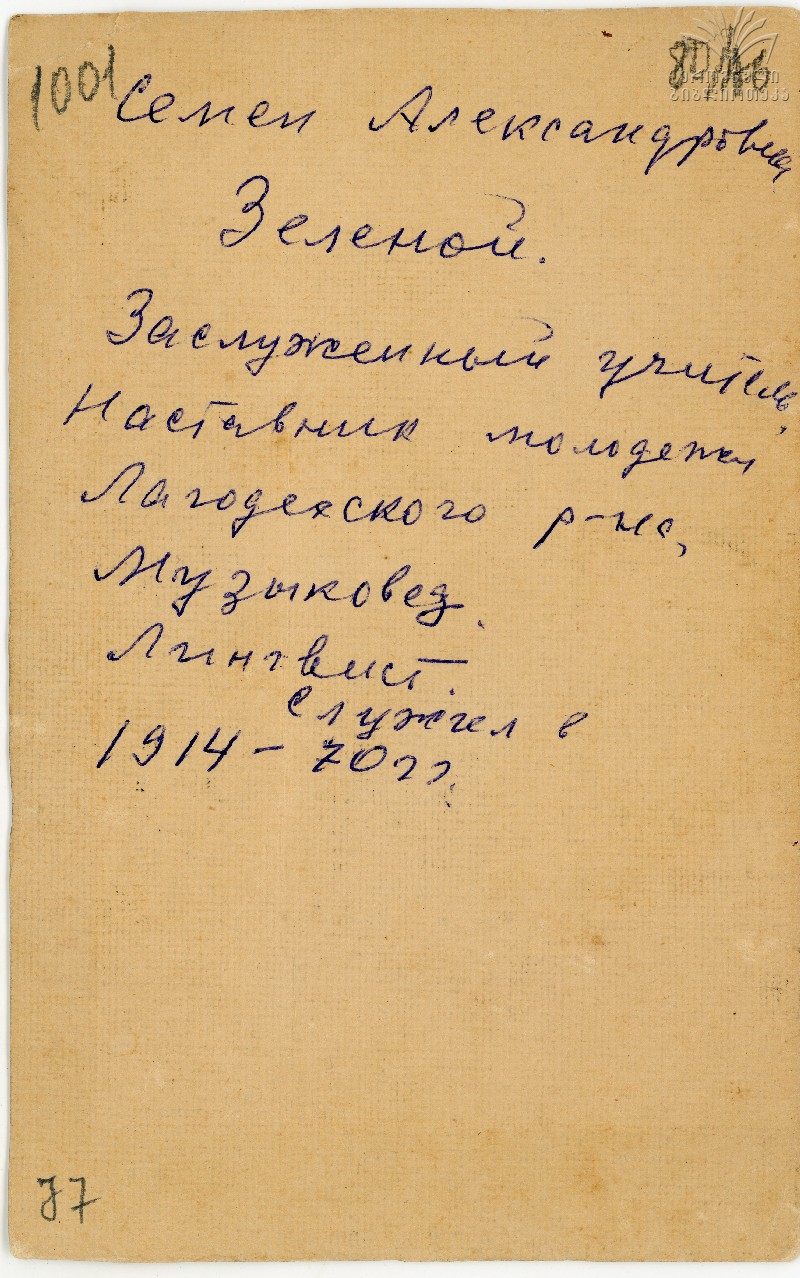 1001
Семен Александрович
Зеленой.
Заслуженный учитель,
Наставник молодежи
Лагодехского р-на,
Музыковед.
Лингвист.
Служил в
1914-70 гг.
77